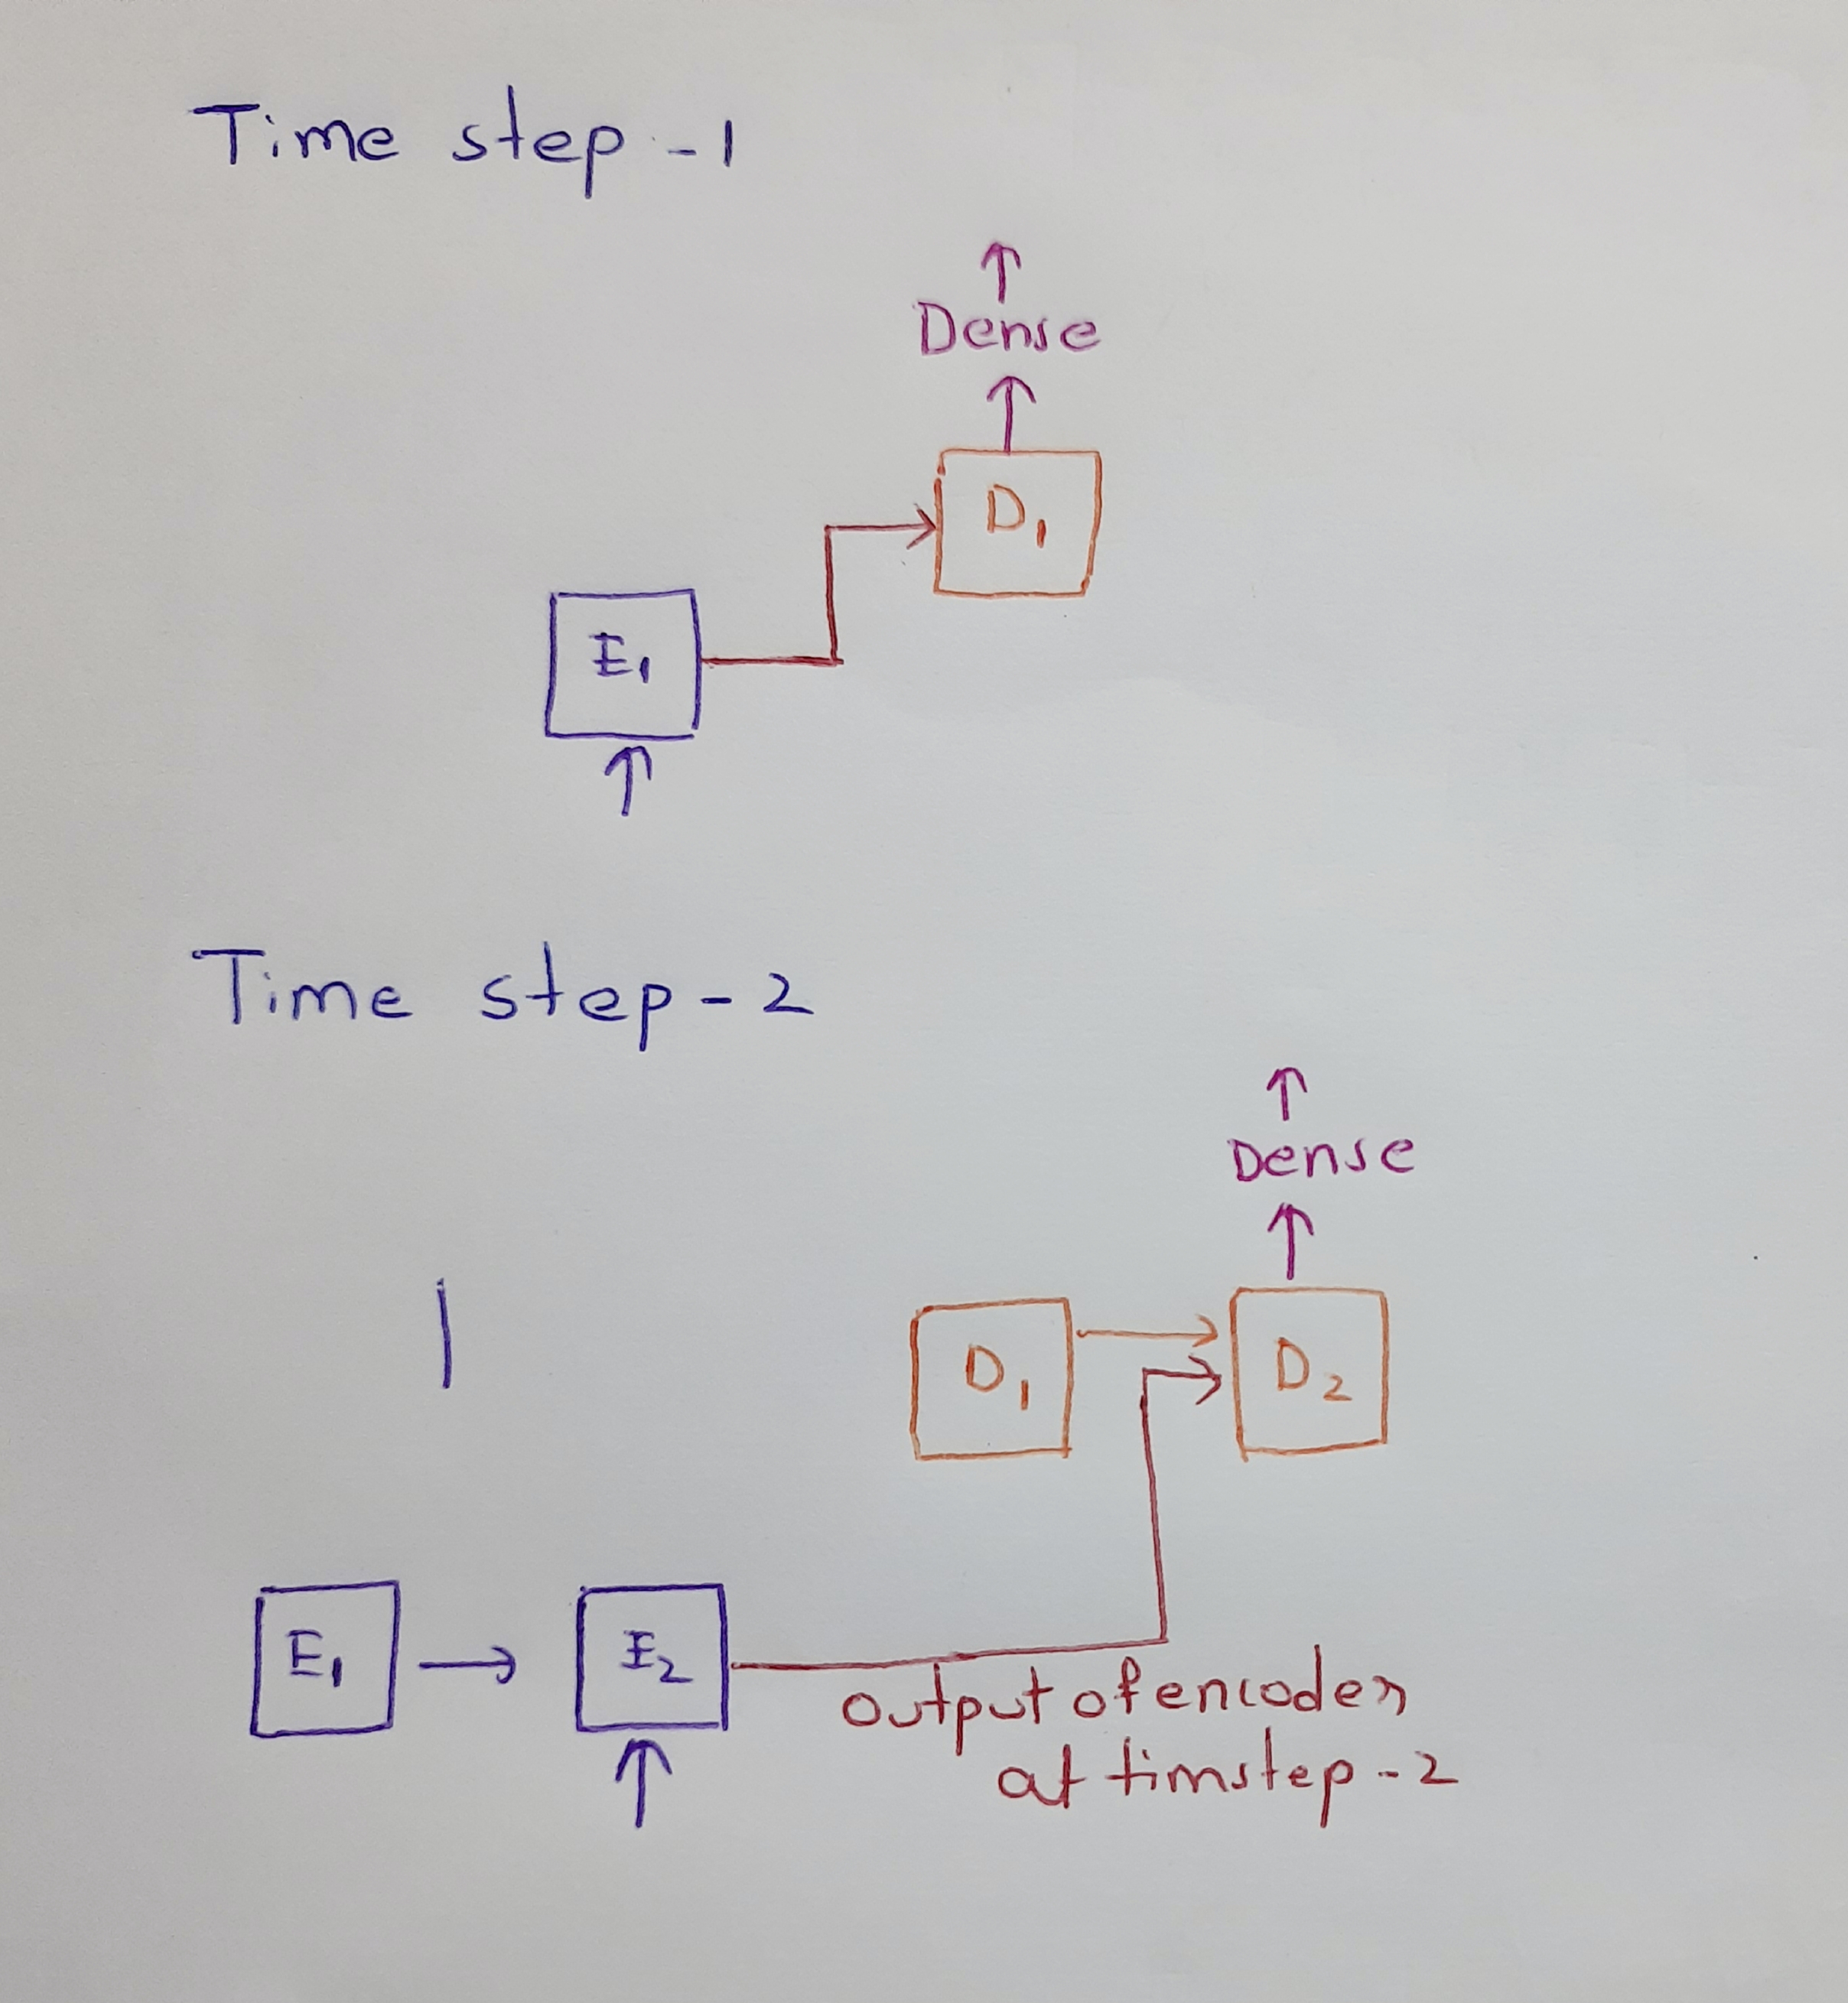 Time step - 1
Dense
D1
E1
Time step - 2
Dense
D1
D2
E1
E2
output of encoder
at timstep - 2